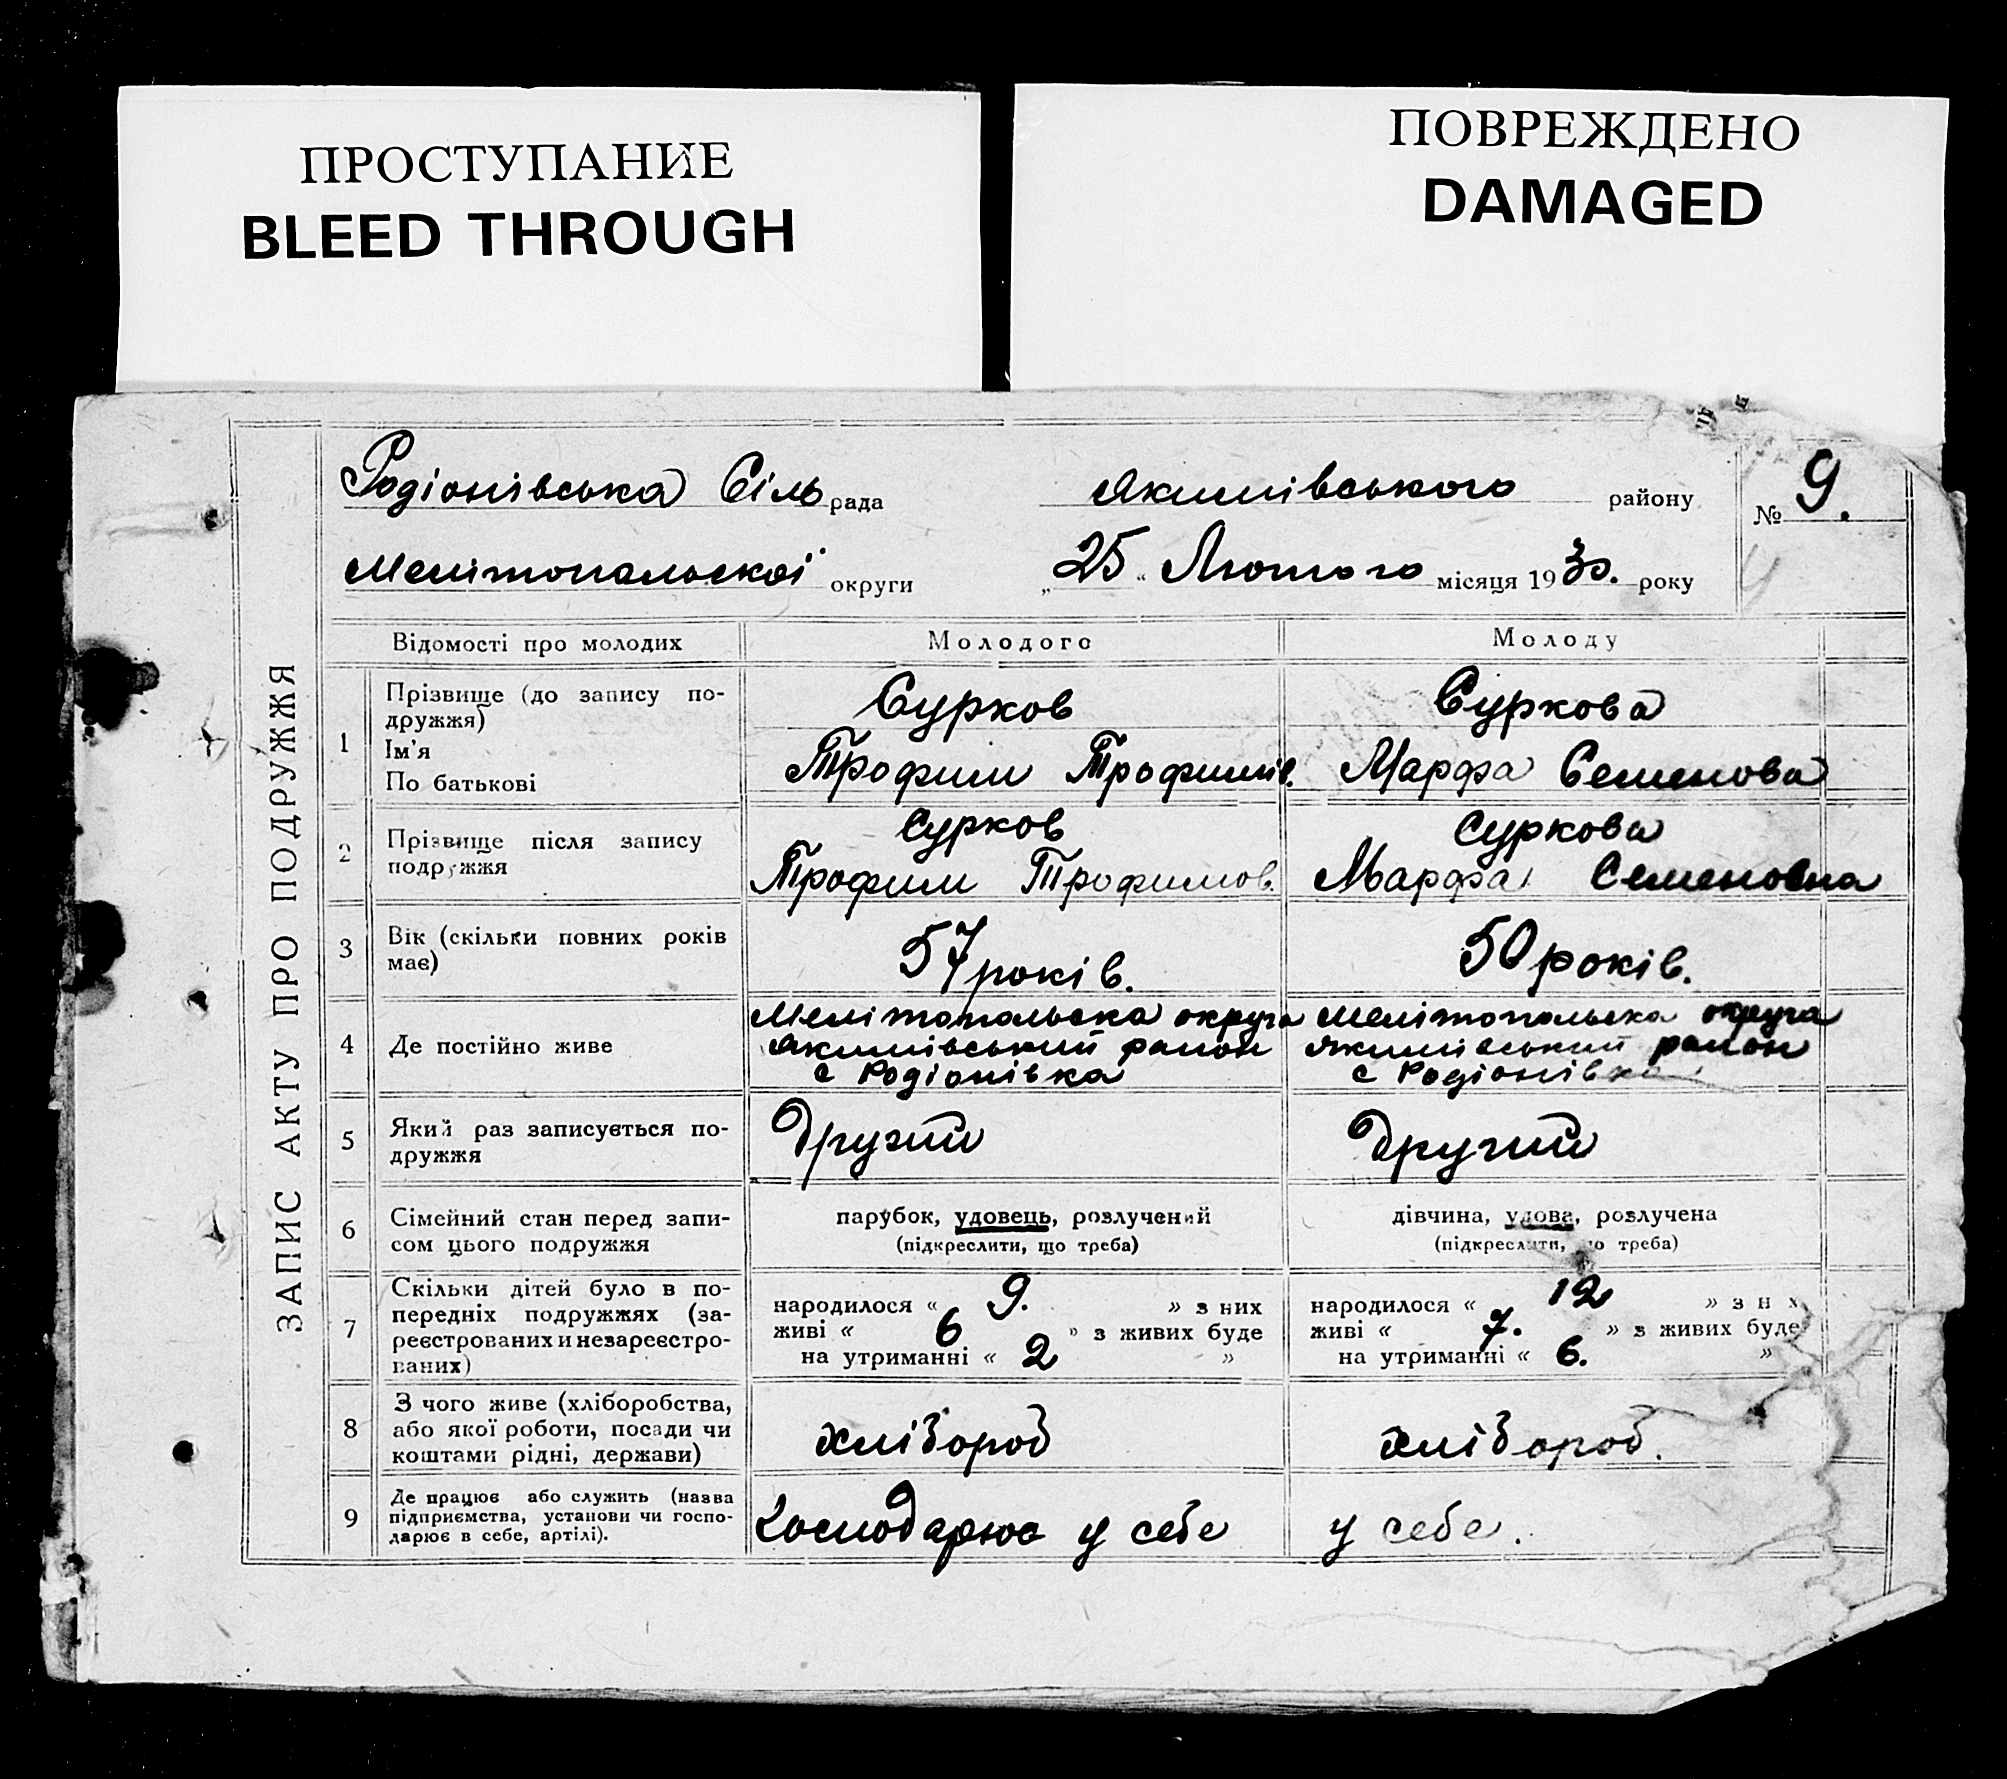 ПРОСТУПАНИЕ
BLEED THROUGH
ПОВРЕЖДЕНО
DAMAGED
ЗАПИС АКТУ ПРО ПОДРУЖЖЯ
Родіонівська Сіль рада Якимівського району № 9.
Мелітопальскої округи „25“ Лютого місяця 1930. року
Відомості про молодих Молодого Молоду
1 Прізвище (до запису по-
дружжя)
Ім'я
По батькові
Сурков
Трофим Трофимів.
Суркова
Марфа Семенова
2 Прізвище після запису
подружжя
Сурков
Трофим Трофимов.
Суркова
Марфа Семеновна
3 Вік (скільки повних років
має)
57 років.
50 років.
4 Де постійно живе
Мелітопальска округа
Якимівський район
с Родіонівка
Мелітопальска округа
Якимівський район
с Родіонівка
5 Який раз записується по-
дружжя
Другий
Другий
6 Сімейний стан перед запи-
сом цього подружжя
парубок, удовець, розлучений
(підкреслити, що треба)
дівчина, удова, розлучена
(підкреслити, що треба)
7 Скільки дітей було в по-
передніх подружжях (за-
реєстрованих и незареєстро-
ваних)
народилося « 9. » з них
живі « 6 » з живих буде
на утриманні « 2 »
народилося « 12 » з них
живі « 7. » з живих буде
на утриманні « 6. »
8 З чого живе (хліборобства,
або якої роботи, посади чи
коштами рідні, держави)
хлібороб
хлібороб.
9 Де працює або служить (назва
підприємства, установи чи госпо-
дарює в себе, артілі).
Господарює у себе
у себе.